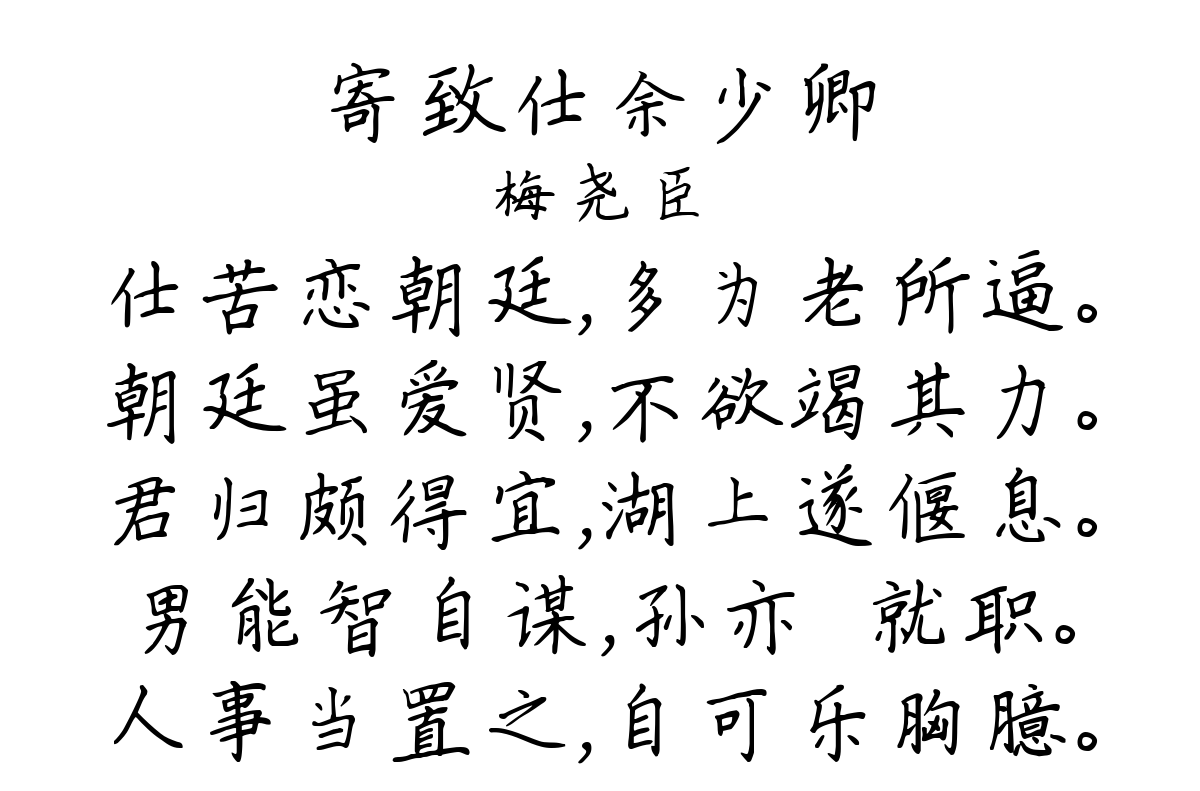 寄致仕余少卿
梅尧臣
仕苦恋朝廷,多为老所逼。
朝廷虽爱贤,不欲竭其力。
君归颇得宜,湖上遂偃息。
男能智自谋,孙亦 就职。
人事当置之,自可乐胸臆。